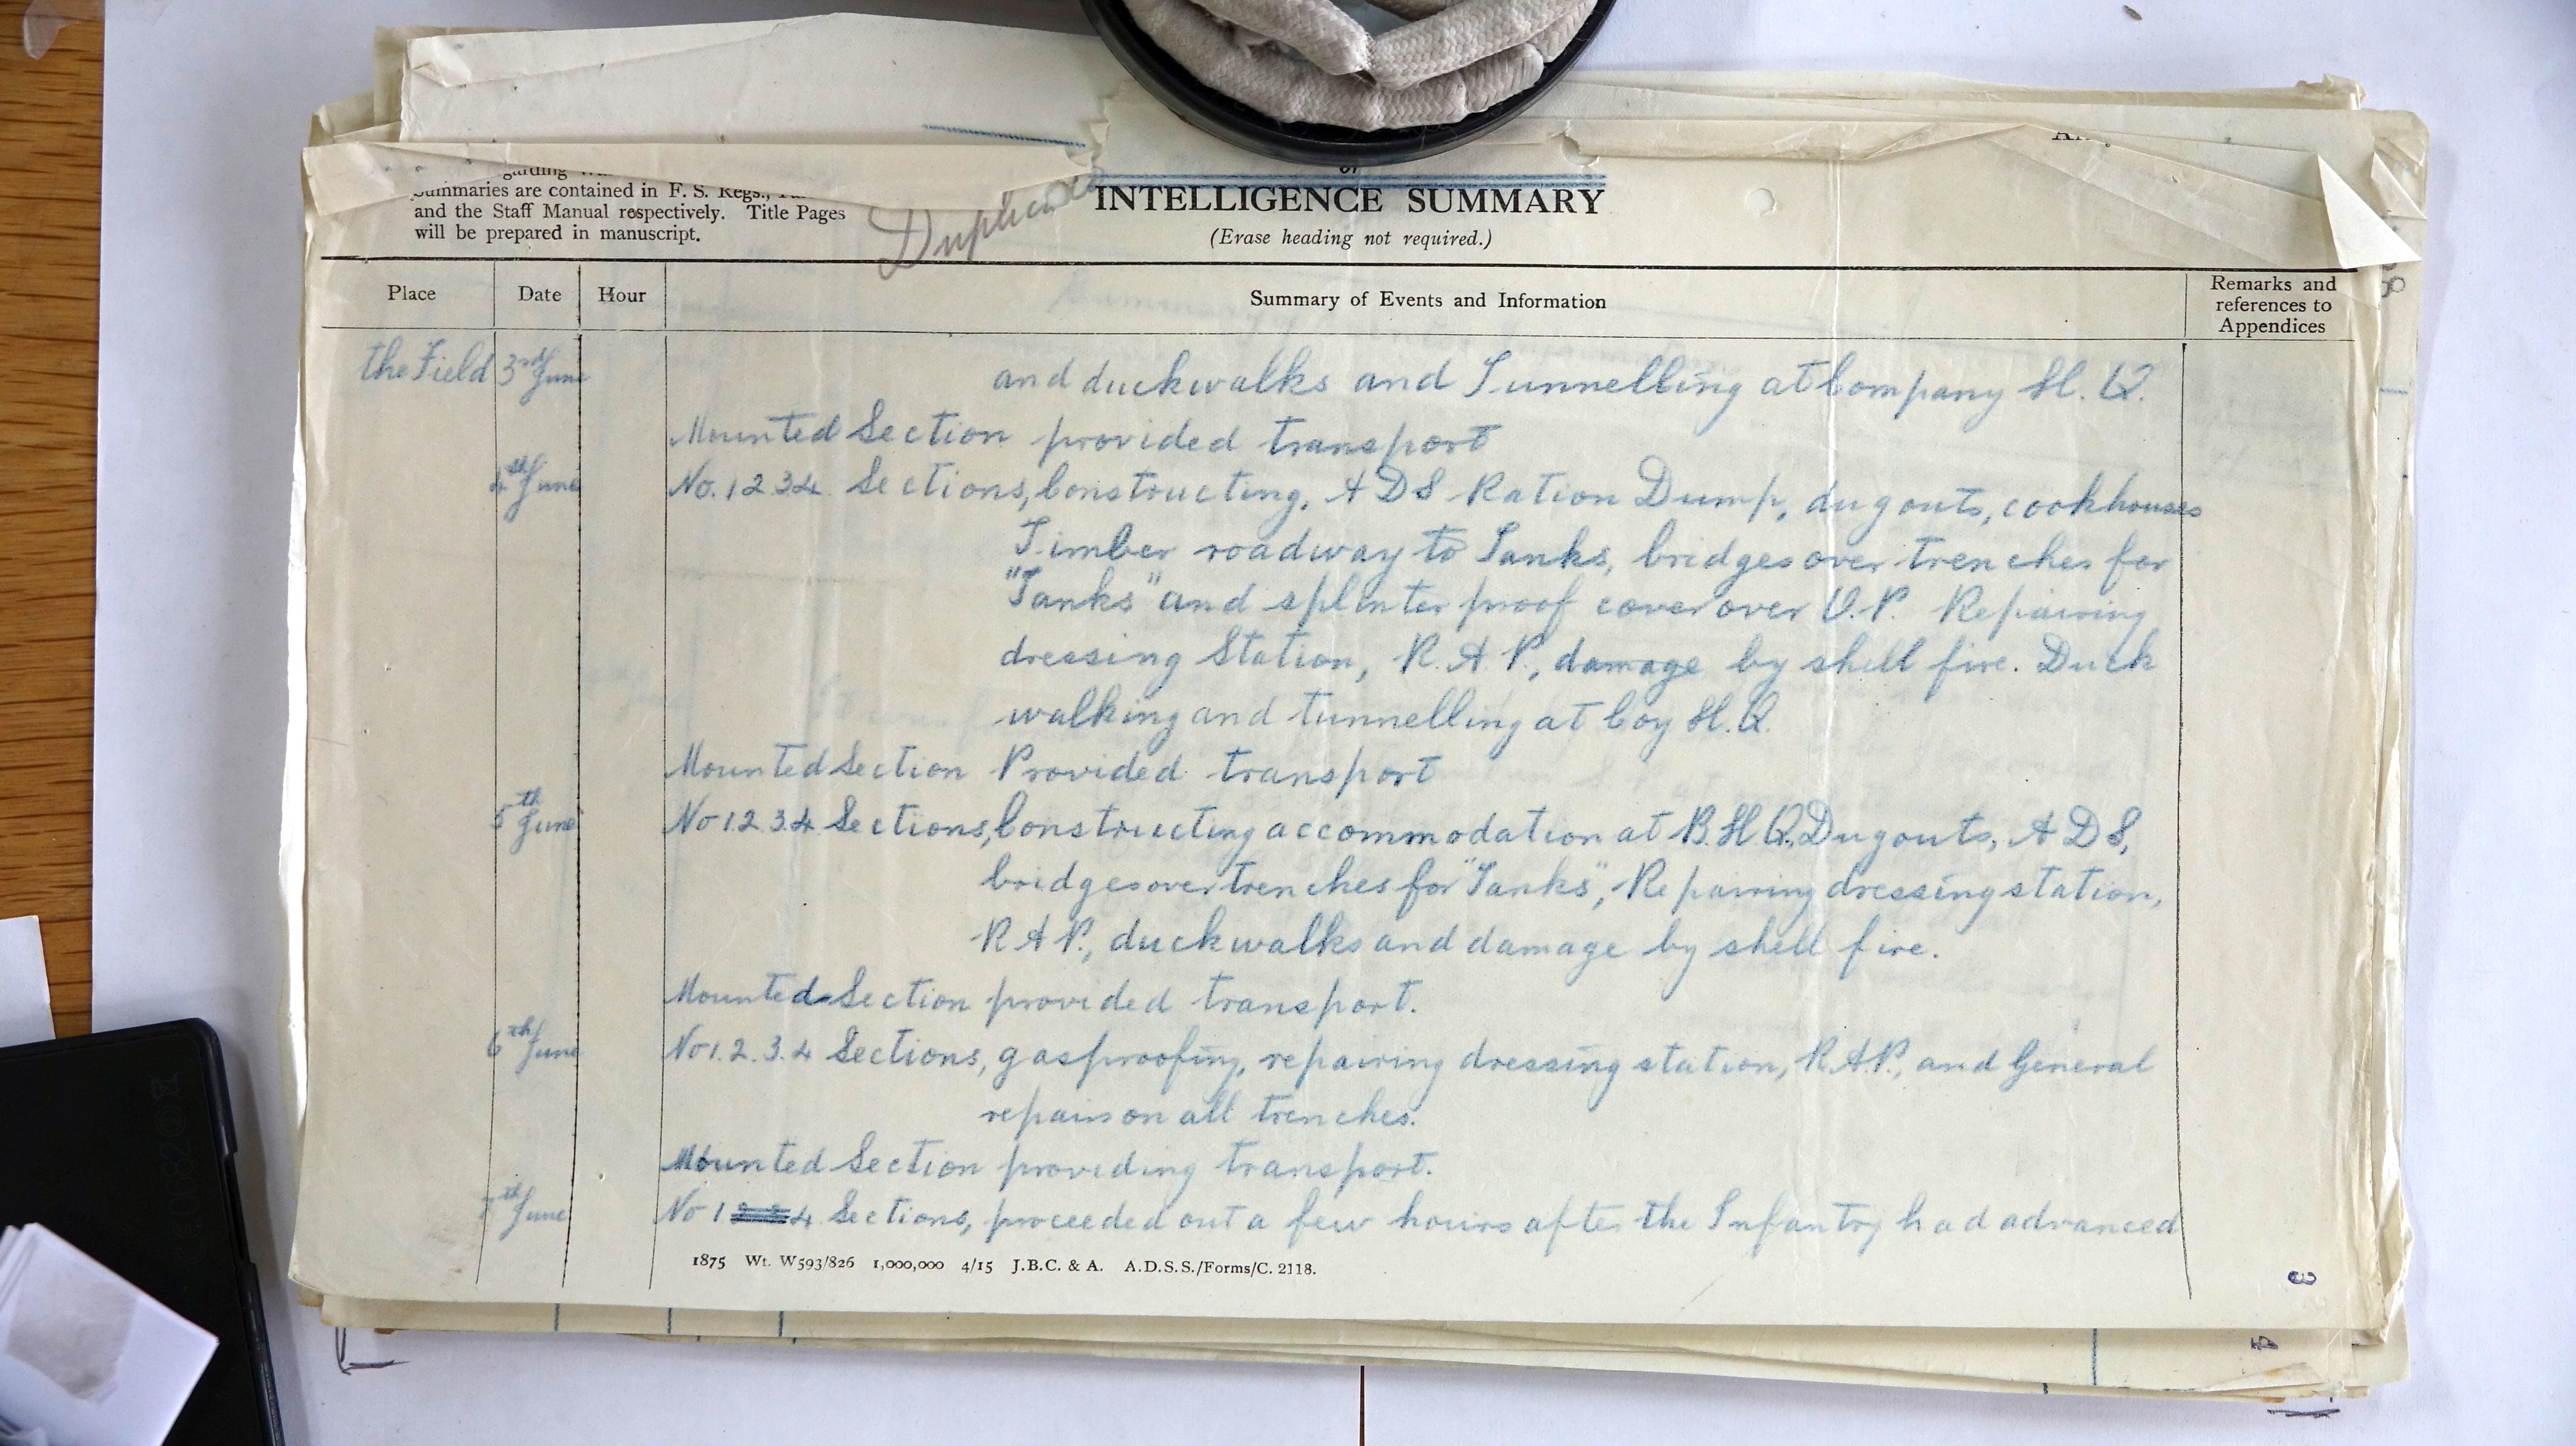 Summaries are contained in F. S. Regs.,
and the Staff Manual respectively. Title Pages
will be prepared in manuscript.
Duplicate
INTELLIGENCE SUMMARY
(Erase heading not required.)
Place Date Hour Summary of Events and Information Remarks and references to Appendices
the Field 3rd June and duckwalks and Tunnelling at Company H.Q.
Mounted Section provided transport
4th June No. 1 2 3 4 Sections, Constructing, A D S Ration Dump, dugouts, cookhouses
Timber roadway to Tanks, bridges over trenches for
"Tanks" and splinter proof cover over O.P. Repairing
dressing Station, R.A.P., damage by shell fire. Duck
walking and tunnelling at Coy H.Q.
Mounted Section Provided transport
5th June No 1.2.3.4 Sections, Constructing accommodation at B.H.Q. Dugouts, A D S,
bridges over trenches for "Tanks", Repairing dressing station,
R A P., duckwalks and damage by shell fire.
Mounted Section provided transport.
6th June No 1.2.3.4 Sections, gasproofing, repairing dressing station, R.A.P., and General
repairs on all trenches.
Mounted Section providing transport.
7th June No 1 4 Sections, proceeded out a few hours after the Infantry had advanced
1875 Wt. W593/826 1,000,000 4/15 J.B.C. & A. A.D.S.S./Forms/C. 2118.
3
4